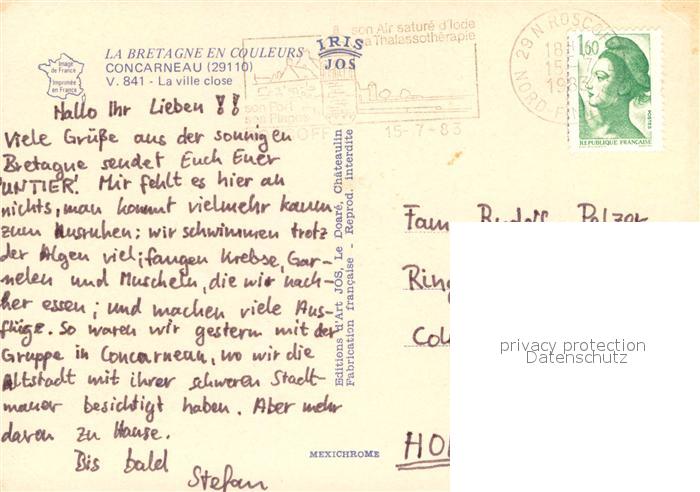 à son Air saturé d'Iode
la Thalassothérapie
LA BRETAGNE EN COULEURS
CONCARNEAU (29110)
V. 841 - La ville close
Image
de France
Imprimée
en France
IRIS
JOS
son Port
ses Plages
15-7-83
29 N ROSCOFF
18H
15-7
1983
NORD-FI
1,60
POSTES
REPUBLIQUE FRANÇAISE
Hallo Ihr Lieben !!
Viele Grüße aus der sonnigen
Bretagne sendet Euch Euer
'UNTIER'. Mir fehlt es hier an
nichts, man kommt vielmehr kaum
zum Ausruhen; wir schwimmen trotz
der Algen viel; fangen Krebse, Gar-
nelen und Muscheln, die wir nach-
her essen; und machen viele Aus-
flüge. So waren wir gestern mit der
Gruppe in Concarneau, wo wir die
Altstadt mit ihrer schweren Stadt-
mauer besichtigt haben. Aber mehr
davon zu Hause.
Bis bald
Stefan
Editions d'Art JOS, Le Doaré, Châteaulin
Fabrication française - Reprod. interdite
MEXICHROME
Fam. Rudolf
Ring
HO
privacy protection
Datenschutz